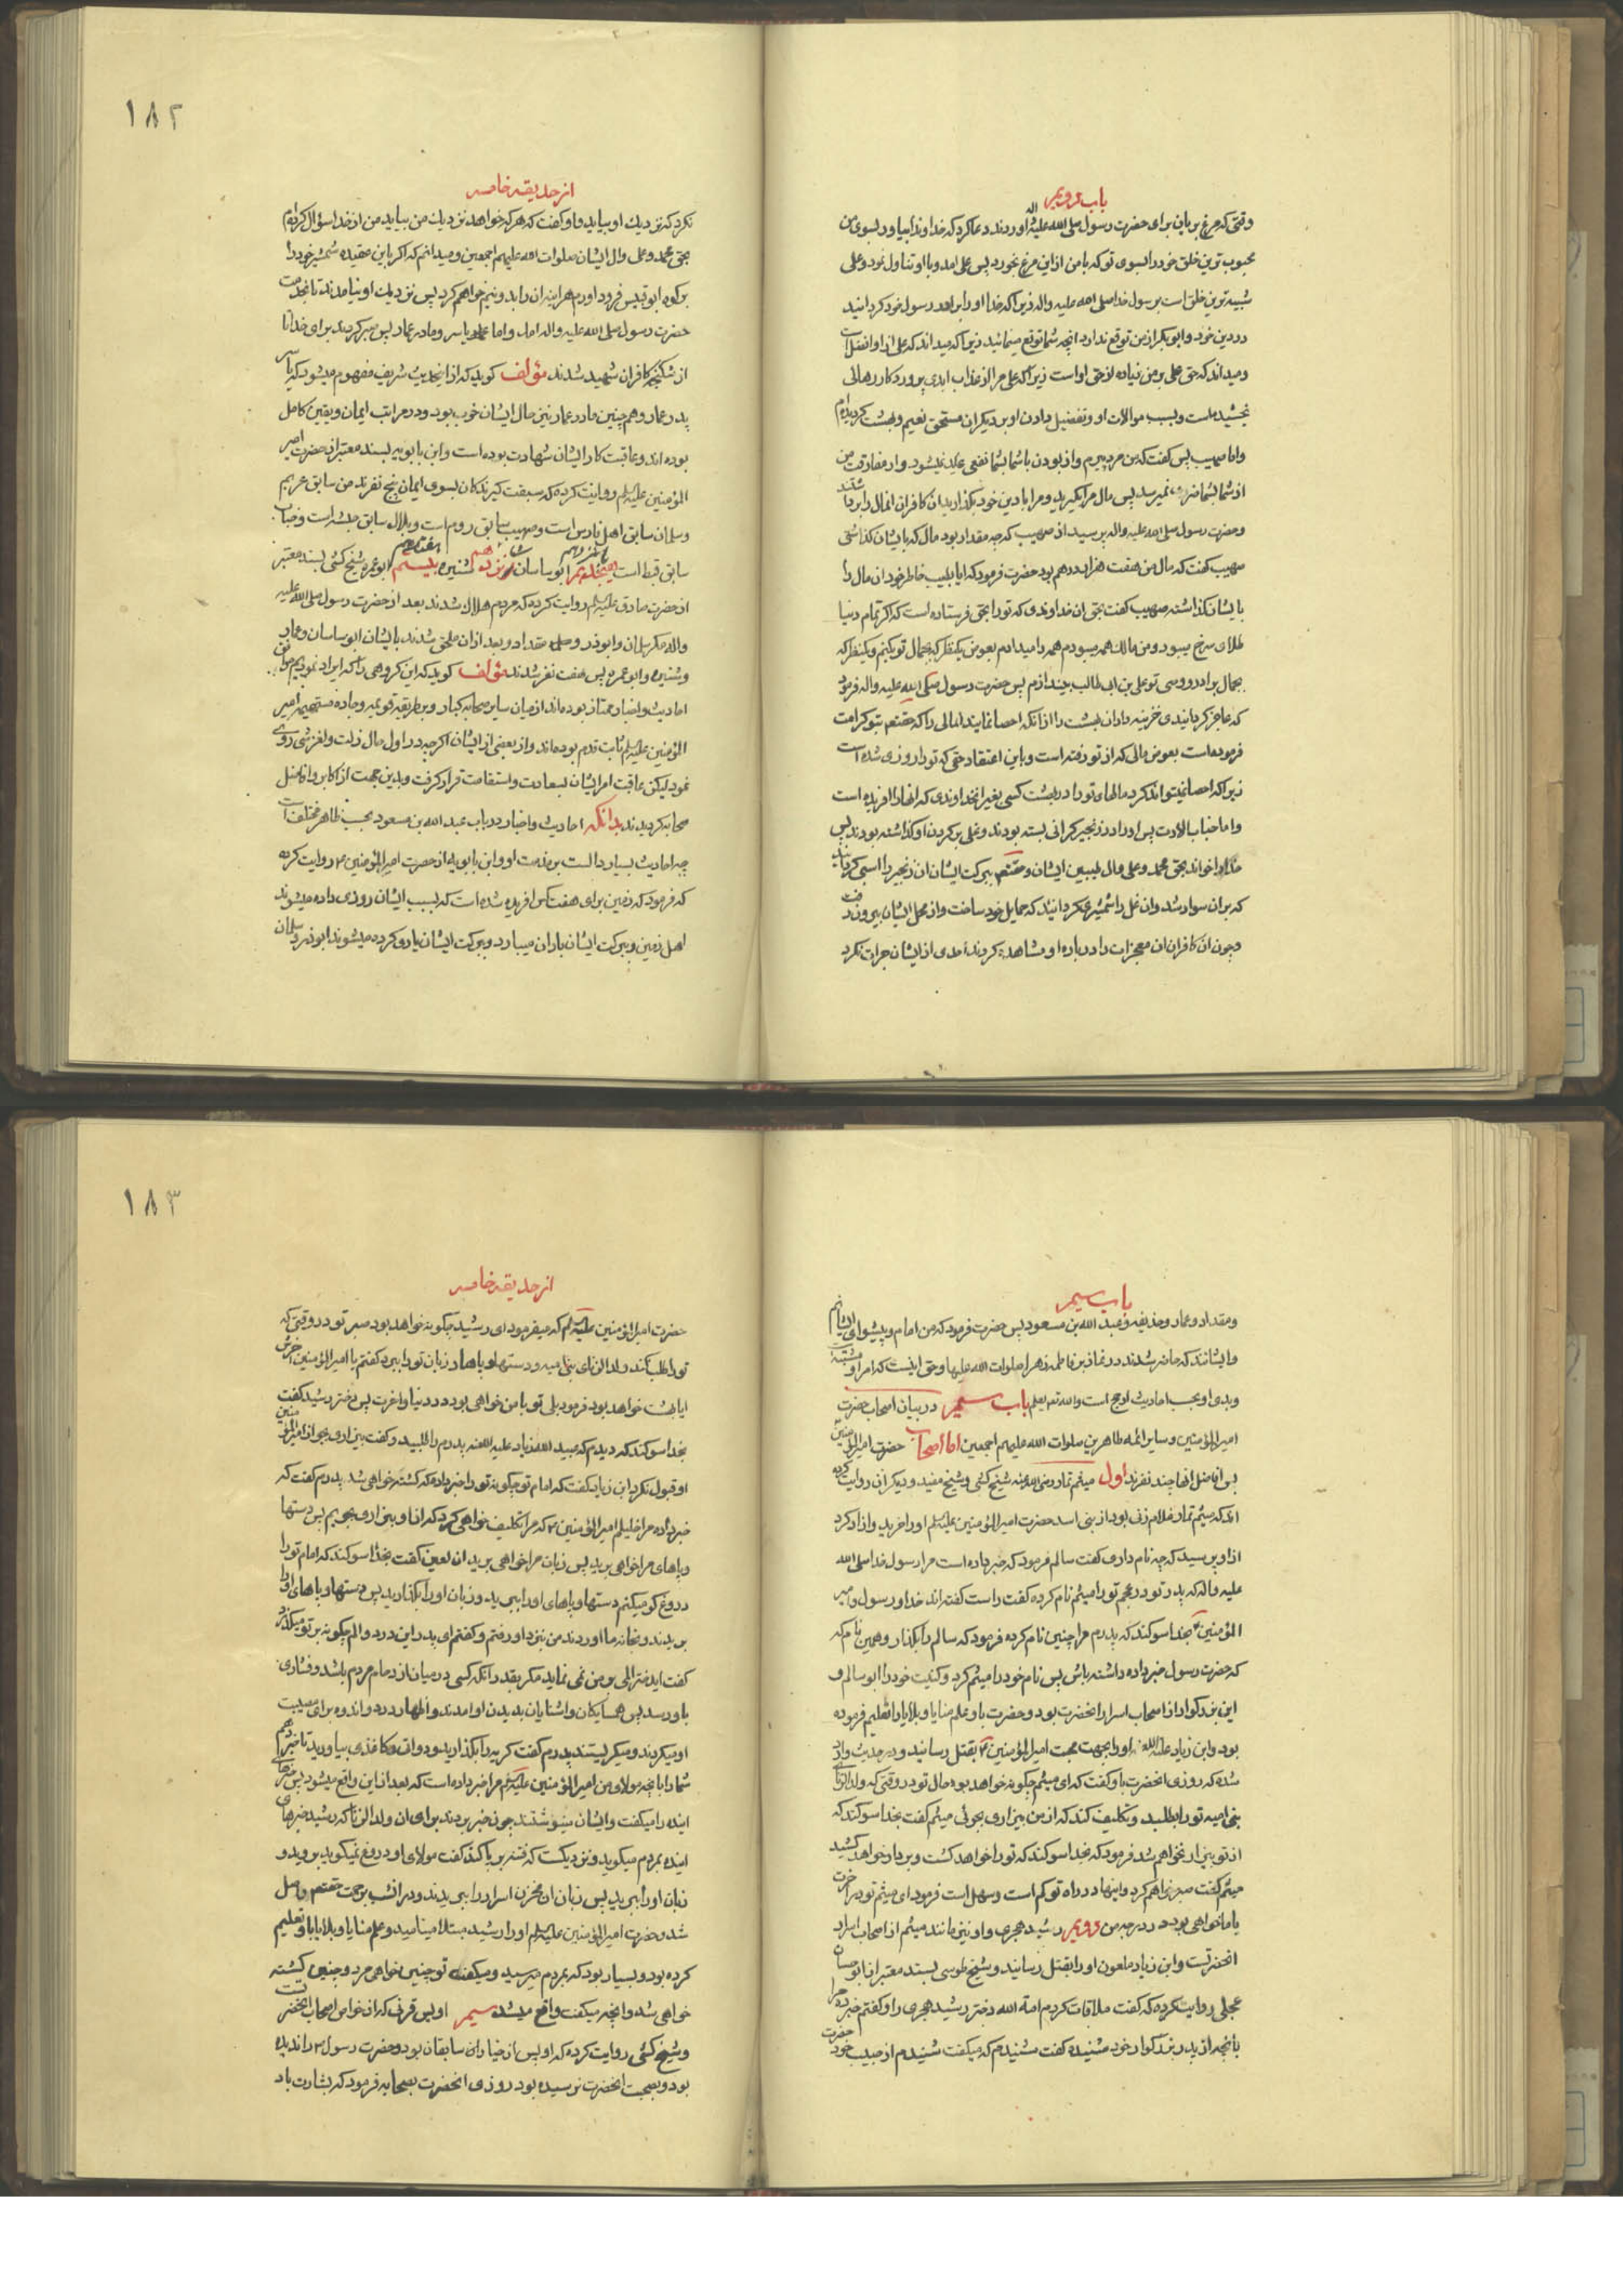 باب دویم
وقتی که مرغ بریان برای حضرت رسول صلی الله علیه و اله اوردند دعا کرد که خداوندا بیاور بسوی من
محبوب ترین خلق خود را بسوی تو که با من از این مرغ بخورد پس علی امد و با او تناول نمود و علی
شبیه ترین خلق است برسول خدا صلی الله علیه واله زیرا که خدا او را برادر رسول خود کردانید
در دین خود و ابوبکر از من توقع ندارد انچه شما توقع مینمائید زیرا که میداند که علی از او افضل است
و میداند که حق علی بر من زیاده از حق او است زیرا که علی مرا از عذاب ابدی پروردکار رهائی
بخشیده است و بسبب موالات او و تفضیل دادن او بر دیکران مستحق نعیم و بهشت کردیده ام
واما صهیب پس کفت که من مرد پیرم و از بودن با شما بشما نفعی عاید نمیشود و از مفارقت من
از شما بشما ضرری نمیرسد پس مال مرا بکیرید و مرا با دین خود بکذارید ان کافران انمال را برداشتند
و حضرت رسول صلی الله علیه واله پرسید از صهیب که چه مقدار بود مال که بایشان کذاشتی
صهیب کفت که مال من هفت هزار درهم بود حضرت فرمود که ایا بطیب خاطر خود ان مال را
بایشان کذاشته صهیب کفت بحق ان خداوندی که تو را بحق فرستاده است که اکر تمام دنیا
طلای سرخ میبود و من مالک همه میبودم همه را میدادم بعوض یکنظر که بجمال تو بکنم و یکنظر که
بجمال برادر و وصی تو علی بن ابی طالب بیندازم پس حضرت رسول صلی الله علیه واله فرمود
که عاجز کردانیدی خزینه داران بهشت را از انکه احصا نمایند امالی را که حقتعم بتو کرامت
فرموده است بعوض مالی که از تو رفته است و باین اعتقاد حق که تو را روزی شده است
زیرا که احصا نمیتواند کرد مالهای تو را در بهشت کسی بغیر انخداوندی که انها را افریده است
واما خباب بن الارت پس او را در زنجیر کرانی بسته بودند و غلی بر کردن او کذاشته بودند پس
خدا را خواند بحق محمد و علی و ال طیبین ایشان و حقتعم ببرکت ایشان ان زنجیر را اسبی کردانید
که بران سوار شد وان غل را شمشیری کردانید که حمایل خود ساخت و از محل ایشان بیرون رفت
و چون ان کافران ان معجزات را درباره او مشاهده کردند احدی از ایشان جرات نکرد
۱۸۲
از حدیقه خامسه
نکرد که نزدیک او بیاید و او کفت که هر که خواهد نزدیک من بیاید من از خدا سؤال کرده ام
بحق محمد و علی و ال ایشان صلوات الله علیهم اجمعین و میدانم که اکر باین عقیده شمشیر خود را
بر کوه ابو قبیس فرود اورم هراینه ان را بدو نیم خواهم کرد پس نزدیک او نیامدند تا بخدمت
حضرت رسول صلی الله علیه واله امد و اما عمار و یاسر و مادر عمار پس صبر کردند برای خدا تا
از شکنجه کافران شهید شدند مؤلف کوید که از اینحدیث شریف مفهوم میشود که یاسر
پدر عمار و همچنین مادر عمار نیز حال ایشان خوب بوده و در مراتب ایمان و یقین کامل
بوده اند و عاقبت کار ایشان شهادت بوده است و ابن بابویه بسند معتبر از حضرت امیر
المؤمنین علیه السلم روایت کرده که سبقت کیرندکان بسوی ایمان پنج نفرند من سابق عربم
و سلمان سابق اهل فارس است و صهیب سابق روم است و بلال سابق حبشه است و خباب
سابق قبط است ابو ساسان شانزدهم شنیره هفدهم ابو عمره شیخ کشی بسند معتبر
از حضرت صادق علیه السلم روایت کرده که مردم هلاک شدند بعد از حضرت رسول صلی الله علیه
واله مکر سلمان و ابوذر و مقداد و بعد از ان ملحق شدند بایشان ابو ساسان و عمار
و شنیره و ابو عمره پس هفت نفر شدند مؤلف کوید که این کروهی را که ایراد نمودیم موافق
احادیث و اخبار ممتاز بوده اند از میان سایر صحابه کبار و بر طریقه قویمه و جاده مستقیمه امیر
المؤمنین علیه السلم ثابت قدم بوده اند و از بعضی از ایشان اکرچه در اول حال زلت و لغزشی روی
نمود لیکن عاقبت امر ایشان بسعادت و استقامت قرار کرفت و بدین جهت از اکابر و افاضل
صحابه کردیدند بدانکه احادیث و اخبار در باب عبد الله بن مسعود بحسب ظاهر مختلف است
چه احادیث بسیار دالست بر مذمت او و ابن بابویه از حضرت امیر المؤمنین ع روایت کرده
که فرمود که زمین برای هفت کس افریده شده است که بسبب ایشان روزی داده میشوند
اهل زمین و ببرکت ایشان باران میبارد و ببرکت ایشان یاری کرده میشوند ابوذر و سلمان
باب سیم
و مقداد و عمار و حذیفه و عبد الله بن مسعود پس حضرت فرمود که من امام و پیشوای ایشانم
و ایشانند که حاضر شدند در نماز بر فاطمه زهرا صلوات الله علیها و حق اینست که امر او مشتبه
و بدی او بحسب احادیث ارجح است والله تعم یعلم باب سیم در بیان اصحاب حضرت
امیر المؤمنین و سایر ائمه طاهرین صلوات الله علیهم اجمعین اما اصحاب حضرت امیر المؤمنین
پس افاضل انها چند نفرند اول میثم تمار رضی الله عنه شیخ کشی و شیخ مفید و دیکران روایت کرده
اند که میثم تمار غلام زنی بود از بنی اسد حضرت امیر المؤمنین علیه السلم او را خرید و ازاد کرد
از او پرسید که چه نام داری کفت سالم فرمود که خبر داده است مرا رسول خدا صلی الله
علیه واله که پدر تو در عجم تو را میثم نام کرده کفت راست کفته اند خدا و رسول و امیر
المؤمنین ع بخدا سوکند که پدرم مرا چنین نام کرده فرمود که سالم را بکذار و همین نام که
که حضرت رسول خبر داده داشته باش پس نام خود را میثم کرد و کنیت خود را ابو سالم و
این بزرکوار از اصحاب اسرار انحضرت بود و حضرت باو علم منایا و بلایا را تعلیم فرموده
بود و ابن زیاد علیه اللعنه او را بجهت محبت امیر المؤمنین ع بقتل رسانید و در حدیث وارد
شده که روزی انحضرت باو کفت که ای میثم چکونه خواهد بود حال تو در وقتی که ولد الزنای
بنی امیه تو را بطلبد و تکلیف کند که از من بیزاری بجوئی میثم کفت بخدا سوکند که
از تو بیزار نخواهم شد فرمود که بخدا سوکند که تو را خواهد کشت و بر دار خواهد کشید
میثم کفت صبر خواهم کرد و اینها در راه تو کم است و سهل است فرمود ای میثم تو در اخرت
با ما خواهی بود در درجه من دویم رشید هجری و او نیز مانند میثم از اصحاب اسرار
انحضرتست و ابن زیاد ملعون او را بقتل رسانید و شیخ طوسی بسند معتبر از ابو حسان
عجلی روایت کرده که کفت ملاقات کردم امة الله دختر رشید هجری را و کفتم خبر ده مرا
بانچه از پدر بزرکوار خود شنیده کفت شنیدم که میکفت شنیدم از حبیب خود حضرت
۱۸۳
از حدیقه خامسه
حضرت امیر المؤمنین علیه السلم که میفرمود ای رشید چکونه خواهد بود صبر تو در وقتی که
تو را طلب کند ولد الزنای بنی امیه و دستها و پاها و زبان تو را ببرد کفتم یا امیر المؤمنین اخرش
ایا بهشت خواهد بود فرمود بلی تو با من خواهی بود در دنیا و اخرت پس دختر رشید کفت
بخدا سوکند که دیدم که عبید الله زیاد علیه اللعنه پدرم را طلبید و کفت بیزاری بجو از امیر المؤمنین
او قبول نکرد ابن زیاد کفت که امام تو چکونه تو را خبر داده که کشته خواهی شد پدرم کفت که
خبر داده مرا خلیلم امیر المؤمنین ع که مرا تکلیف خواهی کرد که از او بیزاری بجویم پس دستها
و پاهای مرا خواهی برید پس زبان مرا خواهی برید ان لعین کفت بخدا سوکند که امام تو را
دروغ کو میکنم دستها و پاهای او را ببرید و زبان او را بکذارید پس دستها و پاهای او را
بریدند و بخانه ما اوردند من بنزد او رفتم و کفتم ای پدر این درد و الم چکونه بر تو میکذرد
کفت ایدختر المی بر من نمی نماید مکر بقدر انکه کسی در میان ازدحام مردم باشد و فشاری
باو رسد پس همسایکان و اشنایان بدیدن او امدند و اظهار درد و اندوه برای مصیبت
او میکردند و میکریستند پدرم کفت کریه را بکذارید و دوات و کاغذی بیاورید تا خبر دهم
شما را بانچه مولای من امیر المؤمنین علیه السلم مرا خبر داده است که بعد از این واقع میشود پس خبرهای
اینده را میکفت و ایشان مینوشتند چون خبر بردند برای ان ولد الزنا که رشید خبرهای
اینده بمردم میکوید و نزدیکست که فتنه بر پا کند کفت مولای او دروغ نمیکوید بروید و
زبان او را ببرید پس زبان ان مخزن اسرار را بریدند و در انشب برحمت حقتعم واصل
شد و حضرت امیر المؤمنین علیه السلم او را رشید مبتلا مینامید و علم منایا و بلایا باو تعلیم
کرده بود و بسیار بود که بمردم میرسید و میکفت تو چنین خواهی مرد و چنین کشته
خواهی شد و انچه میکفت واقع میشد سیم اویس قرنی که از خواص اصحاب انحضرتست
و شیخ کشی روایت کرده که اویس از خیار ان سابقان بود و حضرت رسول ص را ندیده
بود و بصحبت انحضرت نرسیده بود روزی انحضرت بصحابه فرمود که بشارت باد